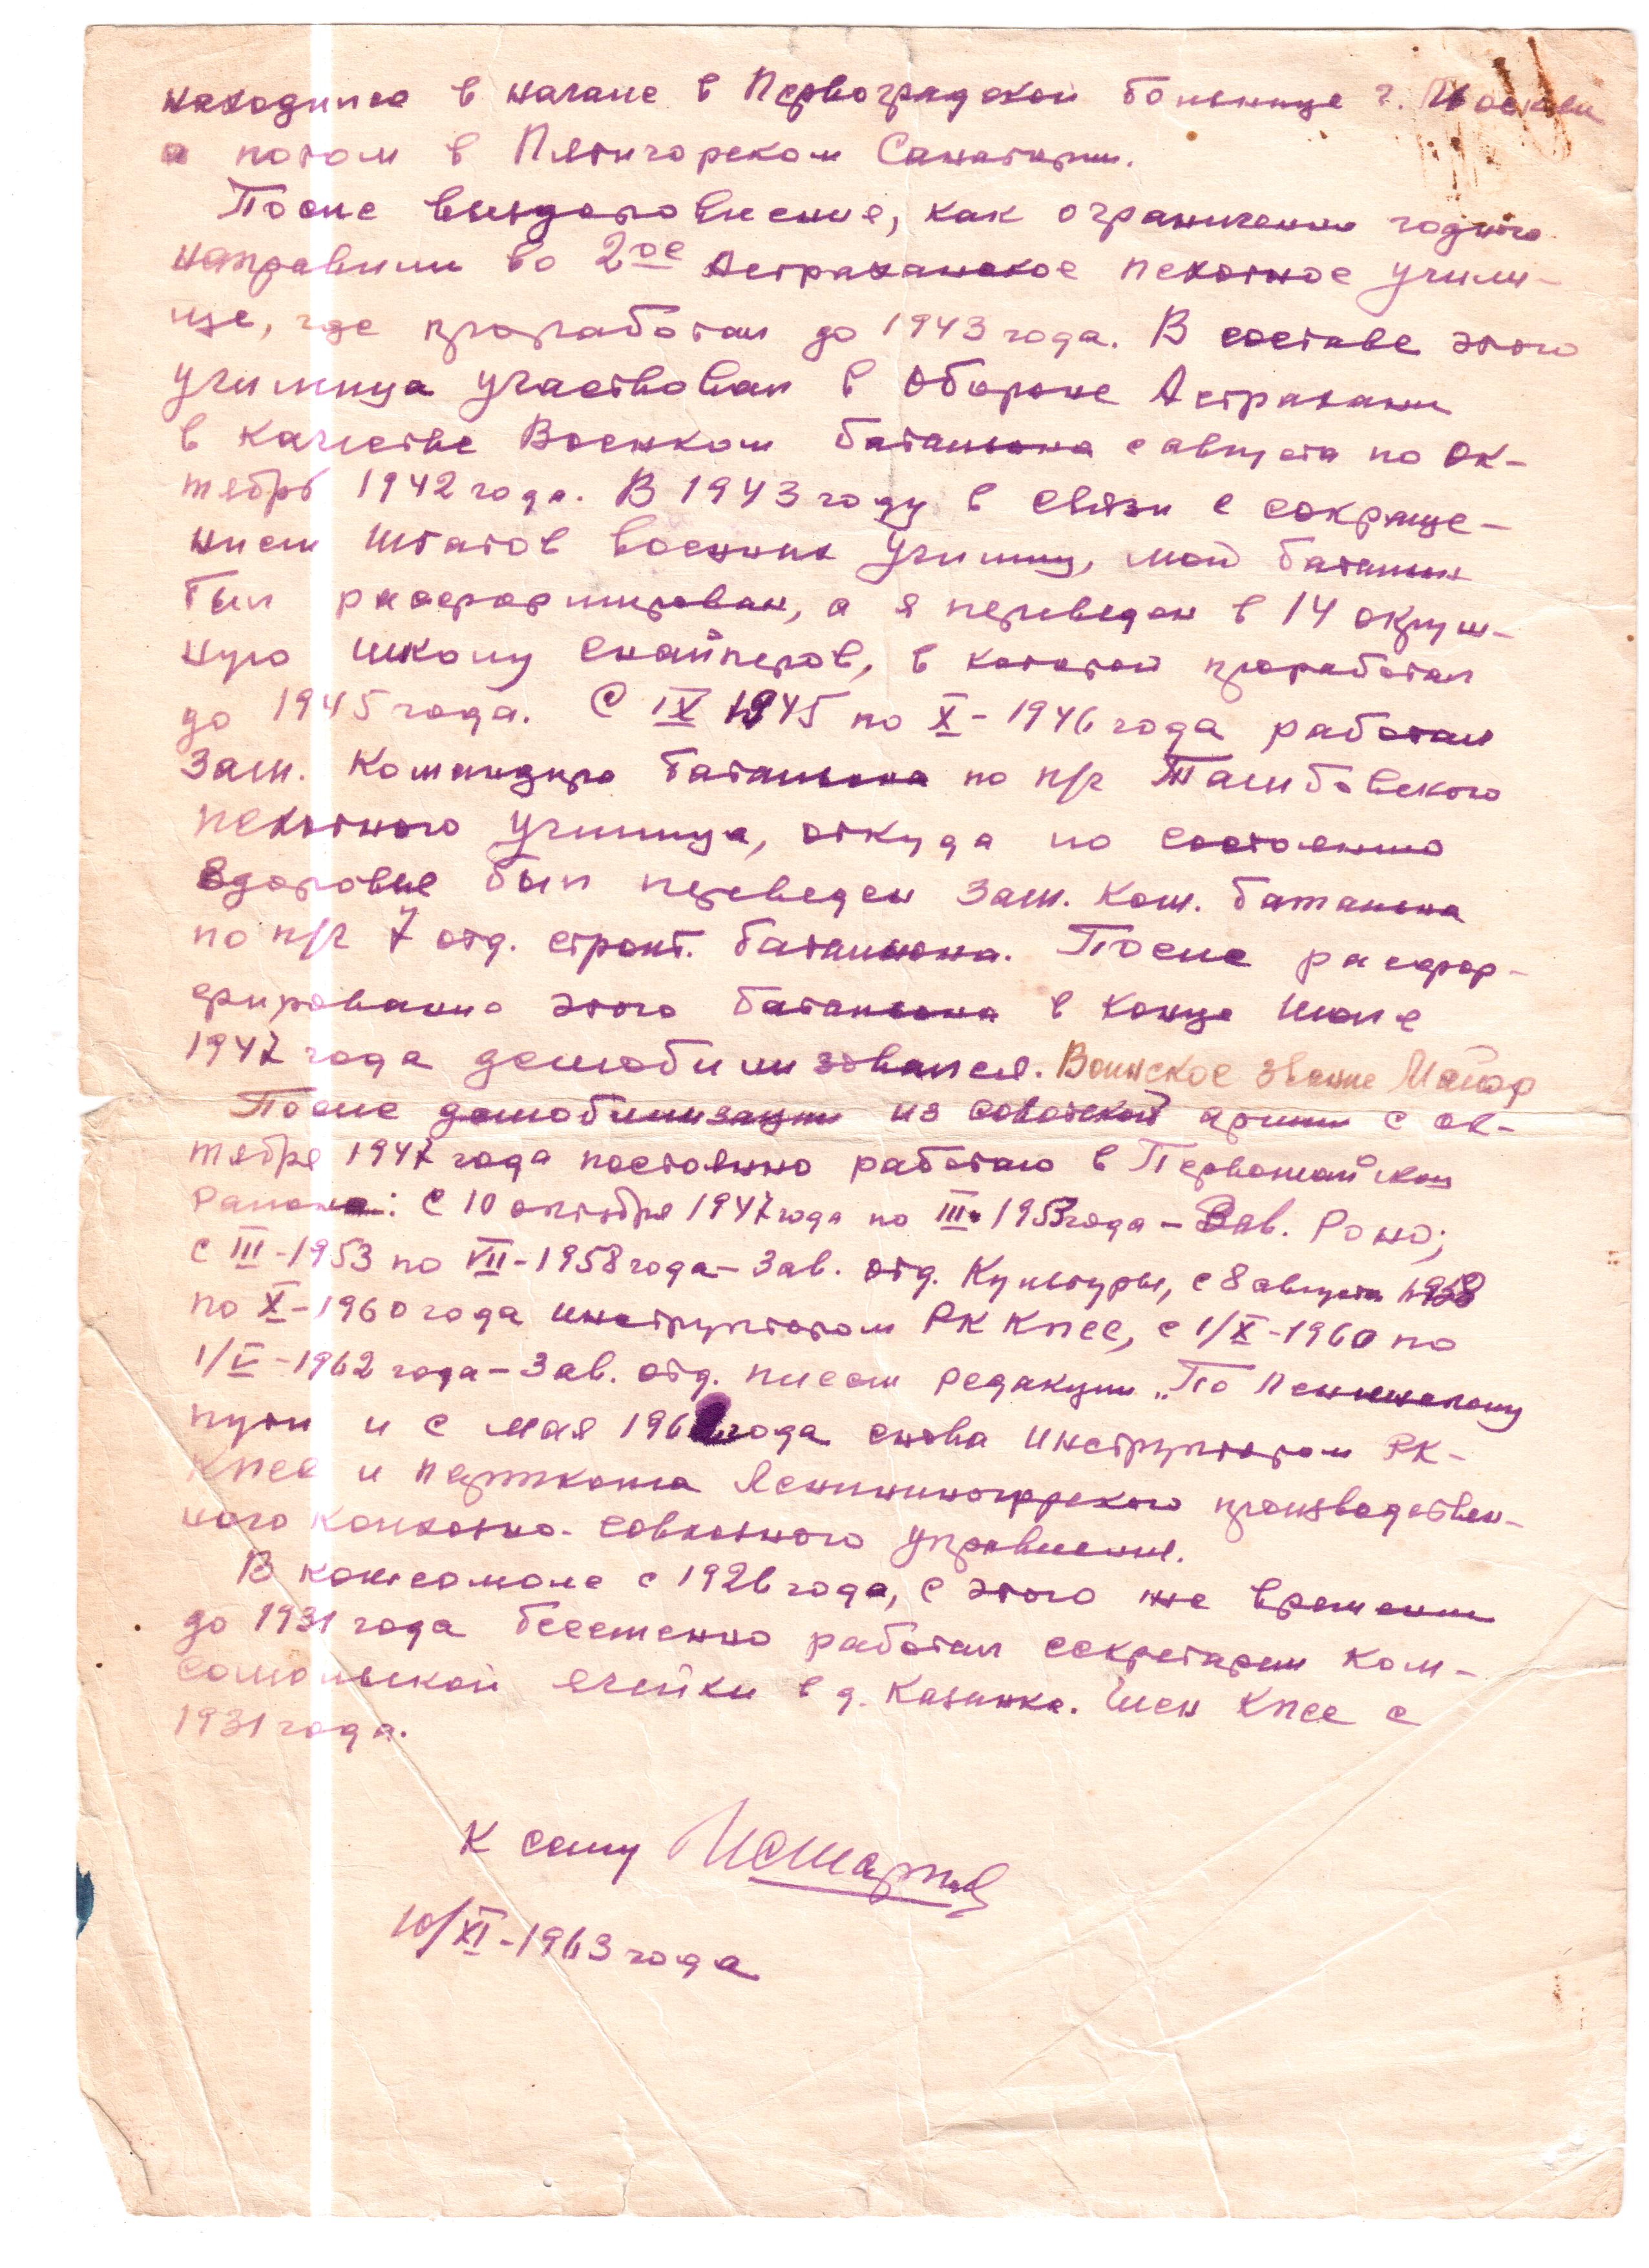 находился в начале в Первоградской больнице г. Москвы
а потом в Пятигорском Санатории.
После выздоровление, как ограниченно годного
направили во 2ое Астраханское пехотное учили-
ще, где проработал до 1943 года. В составе этого
училища участвовал в обороне Астрахани
в качестве Военком батальона с августа по ок-
тябрь 1942 года. В 1943 году в связи с сокраще-
нием штатов военных училищ, мой батальон
был расформирован, а я переведен в 14 окруж-
ную школу снайперов, в которой проработал
до 1945 года. С IX 1945 по X-1946 года работал
Зам. Командира батальона по п/ч Тамбовского
пехотного училища, откуда по состоянию
здоровье был переведен зам. ком. батальона
по п/ч 7 отд. строит. батальона. После расфор-
мирования этого батальона в конце июле
1947 года демобилизовался. Воинское звание Майор
После демобилизации из советской армии с ок-
тября 1947 года постоянно работаю в Первомайском
районе: с 10 октября 1947 года по III-1953 года – Зав. Роно;
с III-1953 по VII-1958 года – Зав. отд. Культуры, с 8 августа 1958
по X-1960 года инструктором РК КПСС, с 1/X-1960 по
1/V-1962 года – Зав. отд. писем редакции „По Ленинскому
пути и с мая 1962 года снова инструктором РК-
КПСС и парткома Лениногорского производствен-
ного колхозно-совхозного управления.
В комсомоле с 1926 года, с этого же времени
до 1931 года бессменно работал секретарем Ком-
сомольской ячейки в д. Казанка. Член КПСС с
1931 года.
К сему
10/XI-1963 года